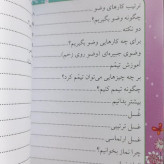 ترتیب کارهای وضو
چگونه وضو بگیریم؟
دو نکته
برای چه کارهایی وضو بگیریم؟
وضوی جبیره‌ای (وضوی روی زخم)
آموزش تیمّم
بر چه چیزهایی می‌توان تیمّم کرد؟
چگونه تیمم کنیم؟
بیشتر بدانیم
غسل
غسل ترتیبی
غسل ارتماسی
چرا نماز بخوانیم؟